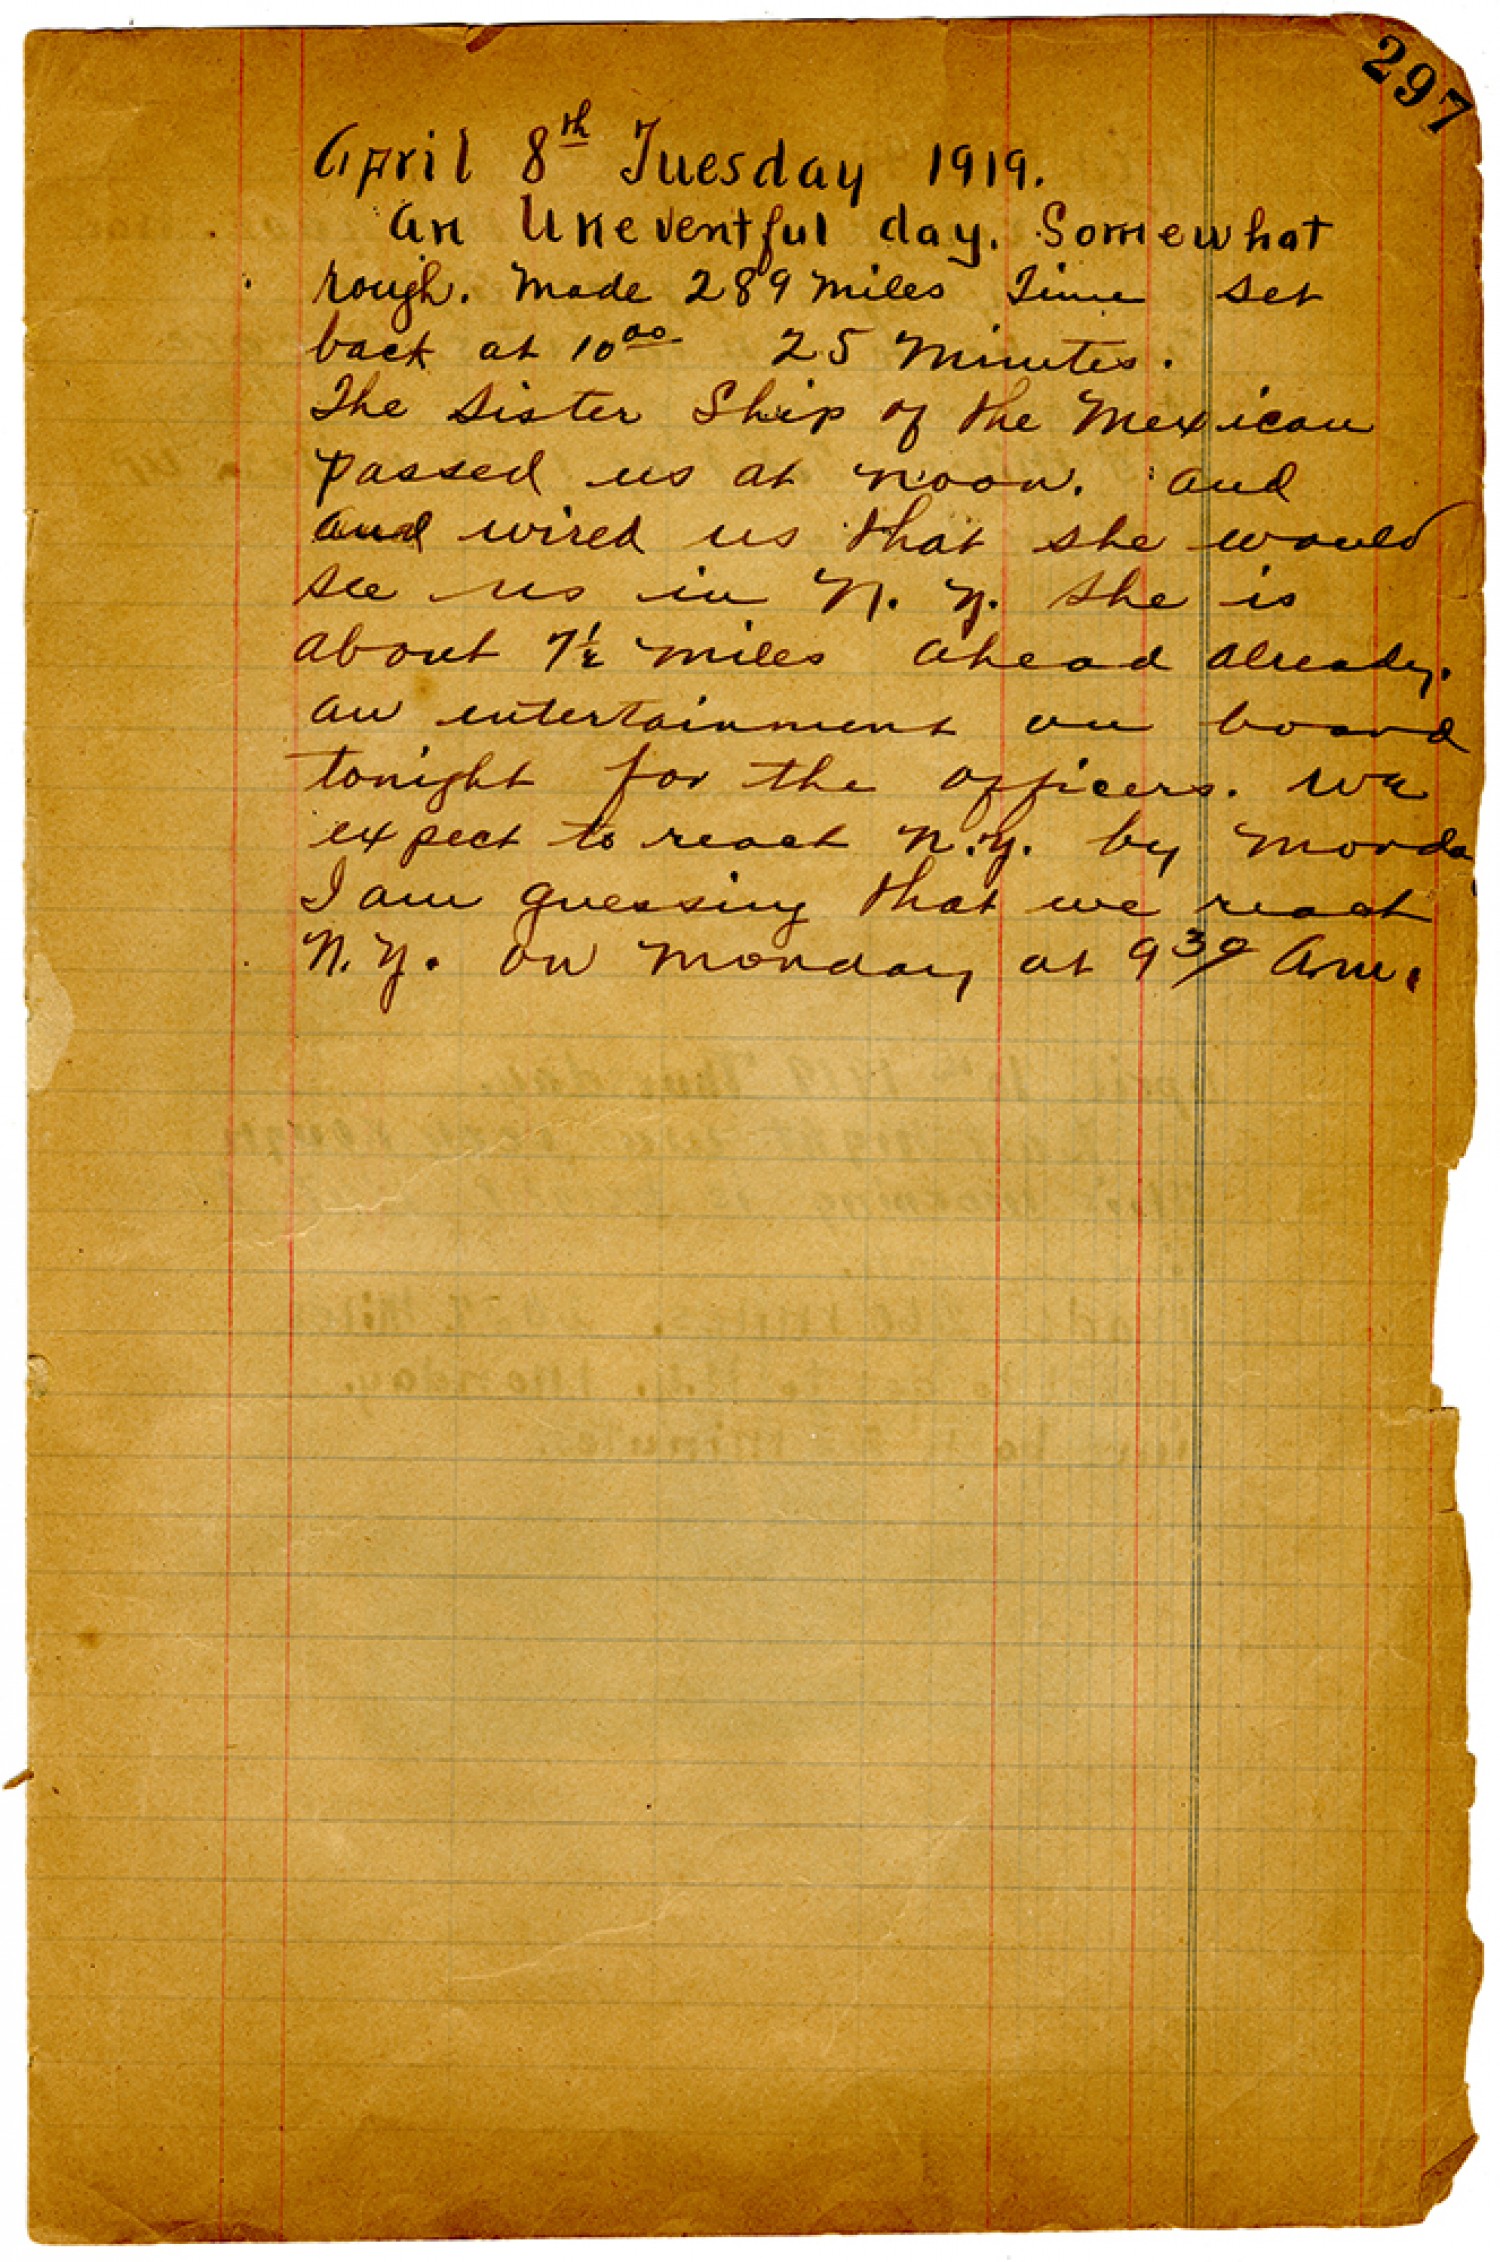 297
April 8th Tuesday 1919.
An Uneventful day. Somewhat
rough. Made 289 miles Time set
back at 10 00 25 Minutes.
The Sister Ship of the Mexican
passed us at noon. and
and wired us that she would
see us in N. Y. She is
about 7½ miles ahead already.
an entertainment on board
tonight for the officers. We
expect to reach N.Y. by Monda
I am guessing that we reach
N. Y. on Monday at 9 30 A.m.